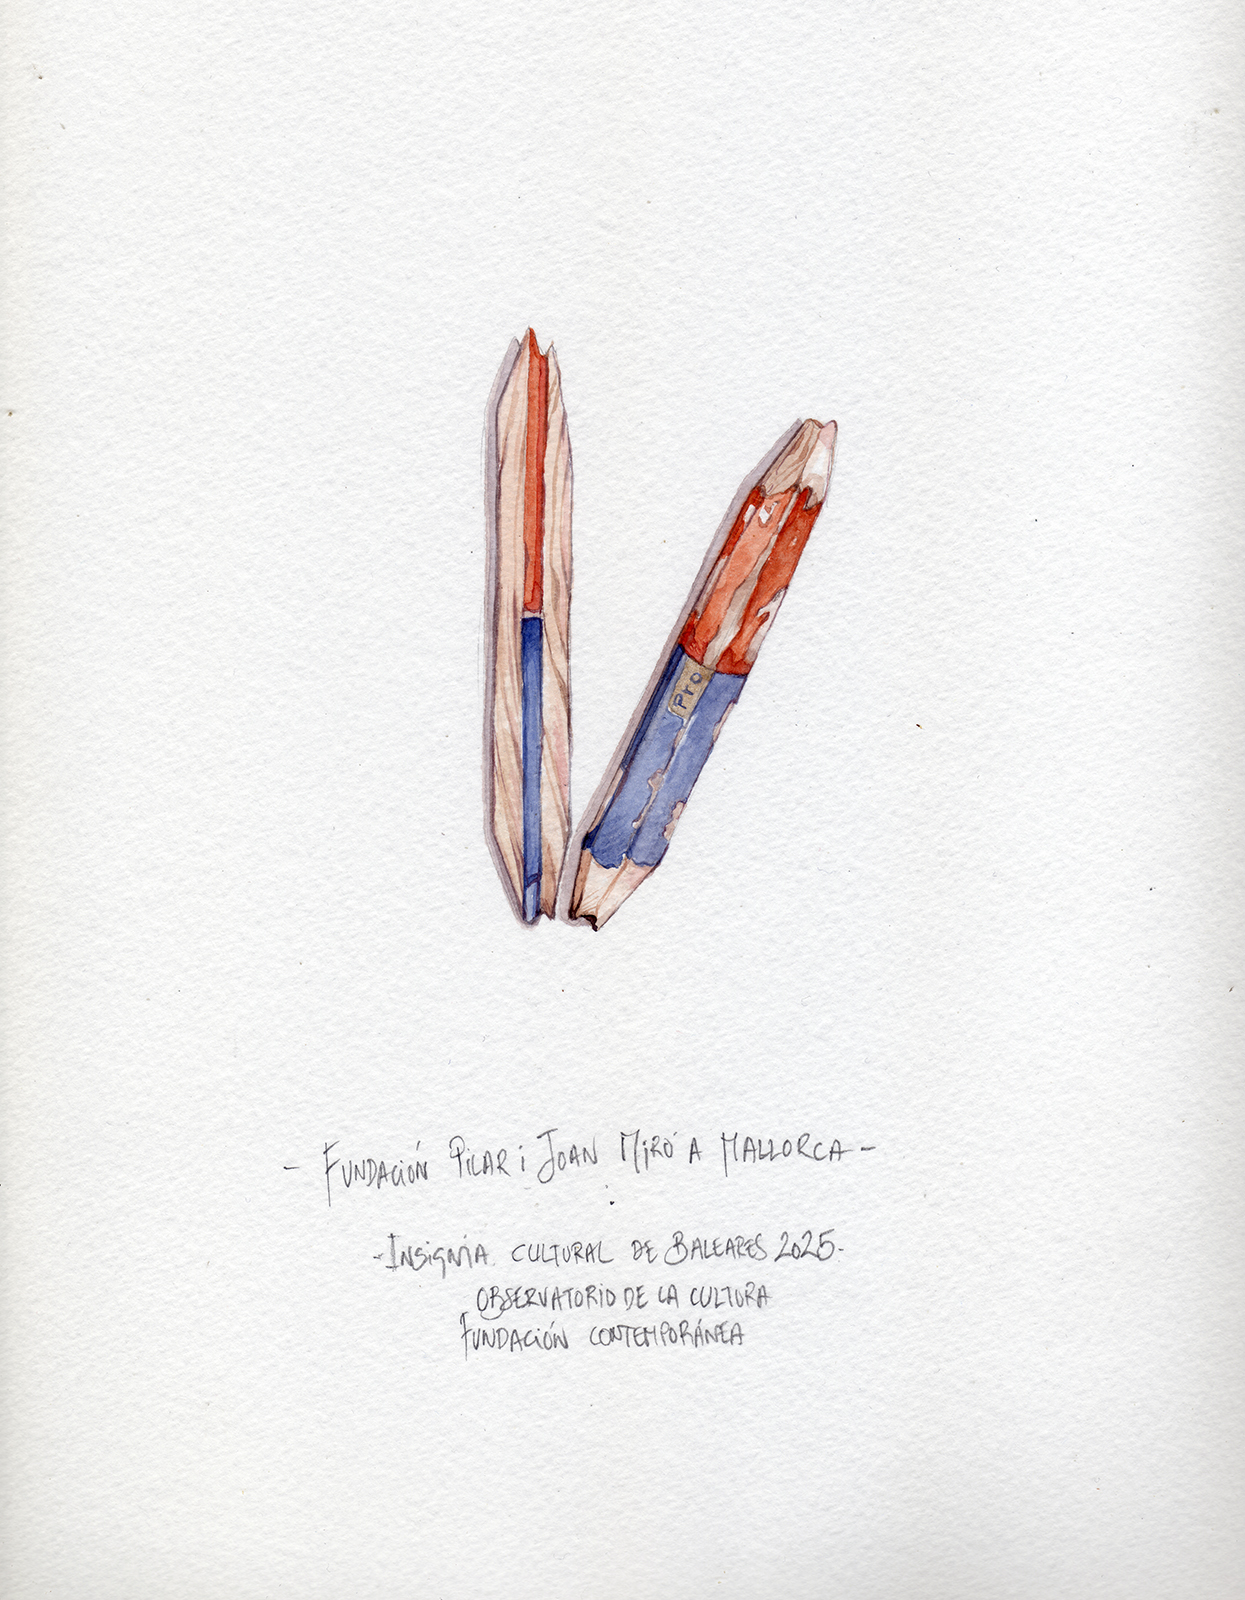 Pro
- FUNDACIÓN PILAR i JOAN MIRÓ A MALLORCA -
- INSIGNIA CULTURAL DE BALEARES 2025 -
OBSERVATORIO DE LA CULTURA
FUNDACIÓN CONTEMPORÁNEA